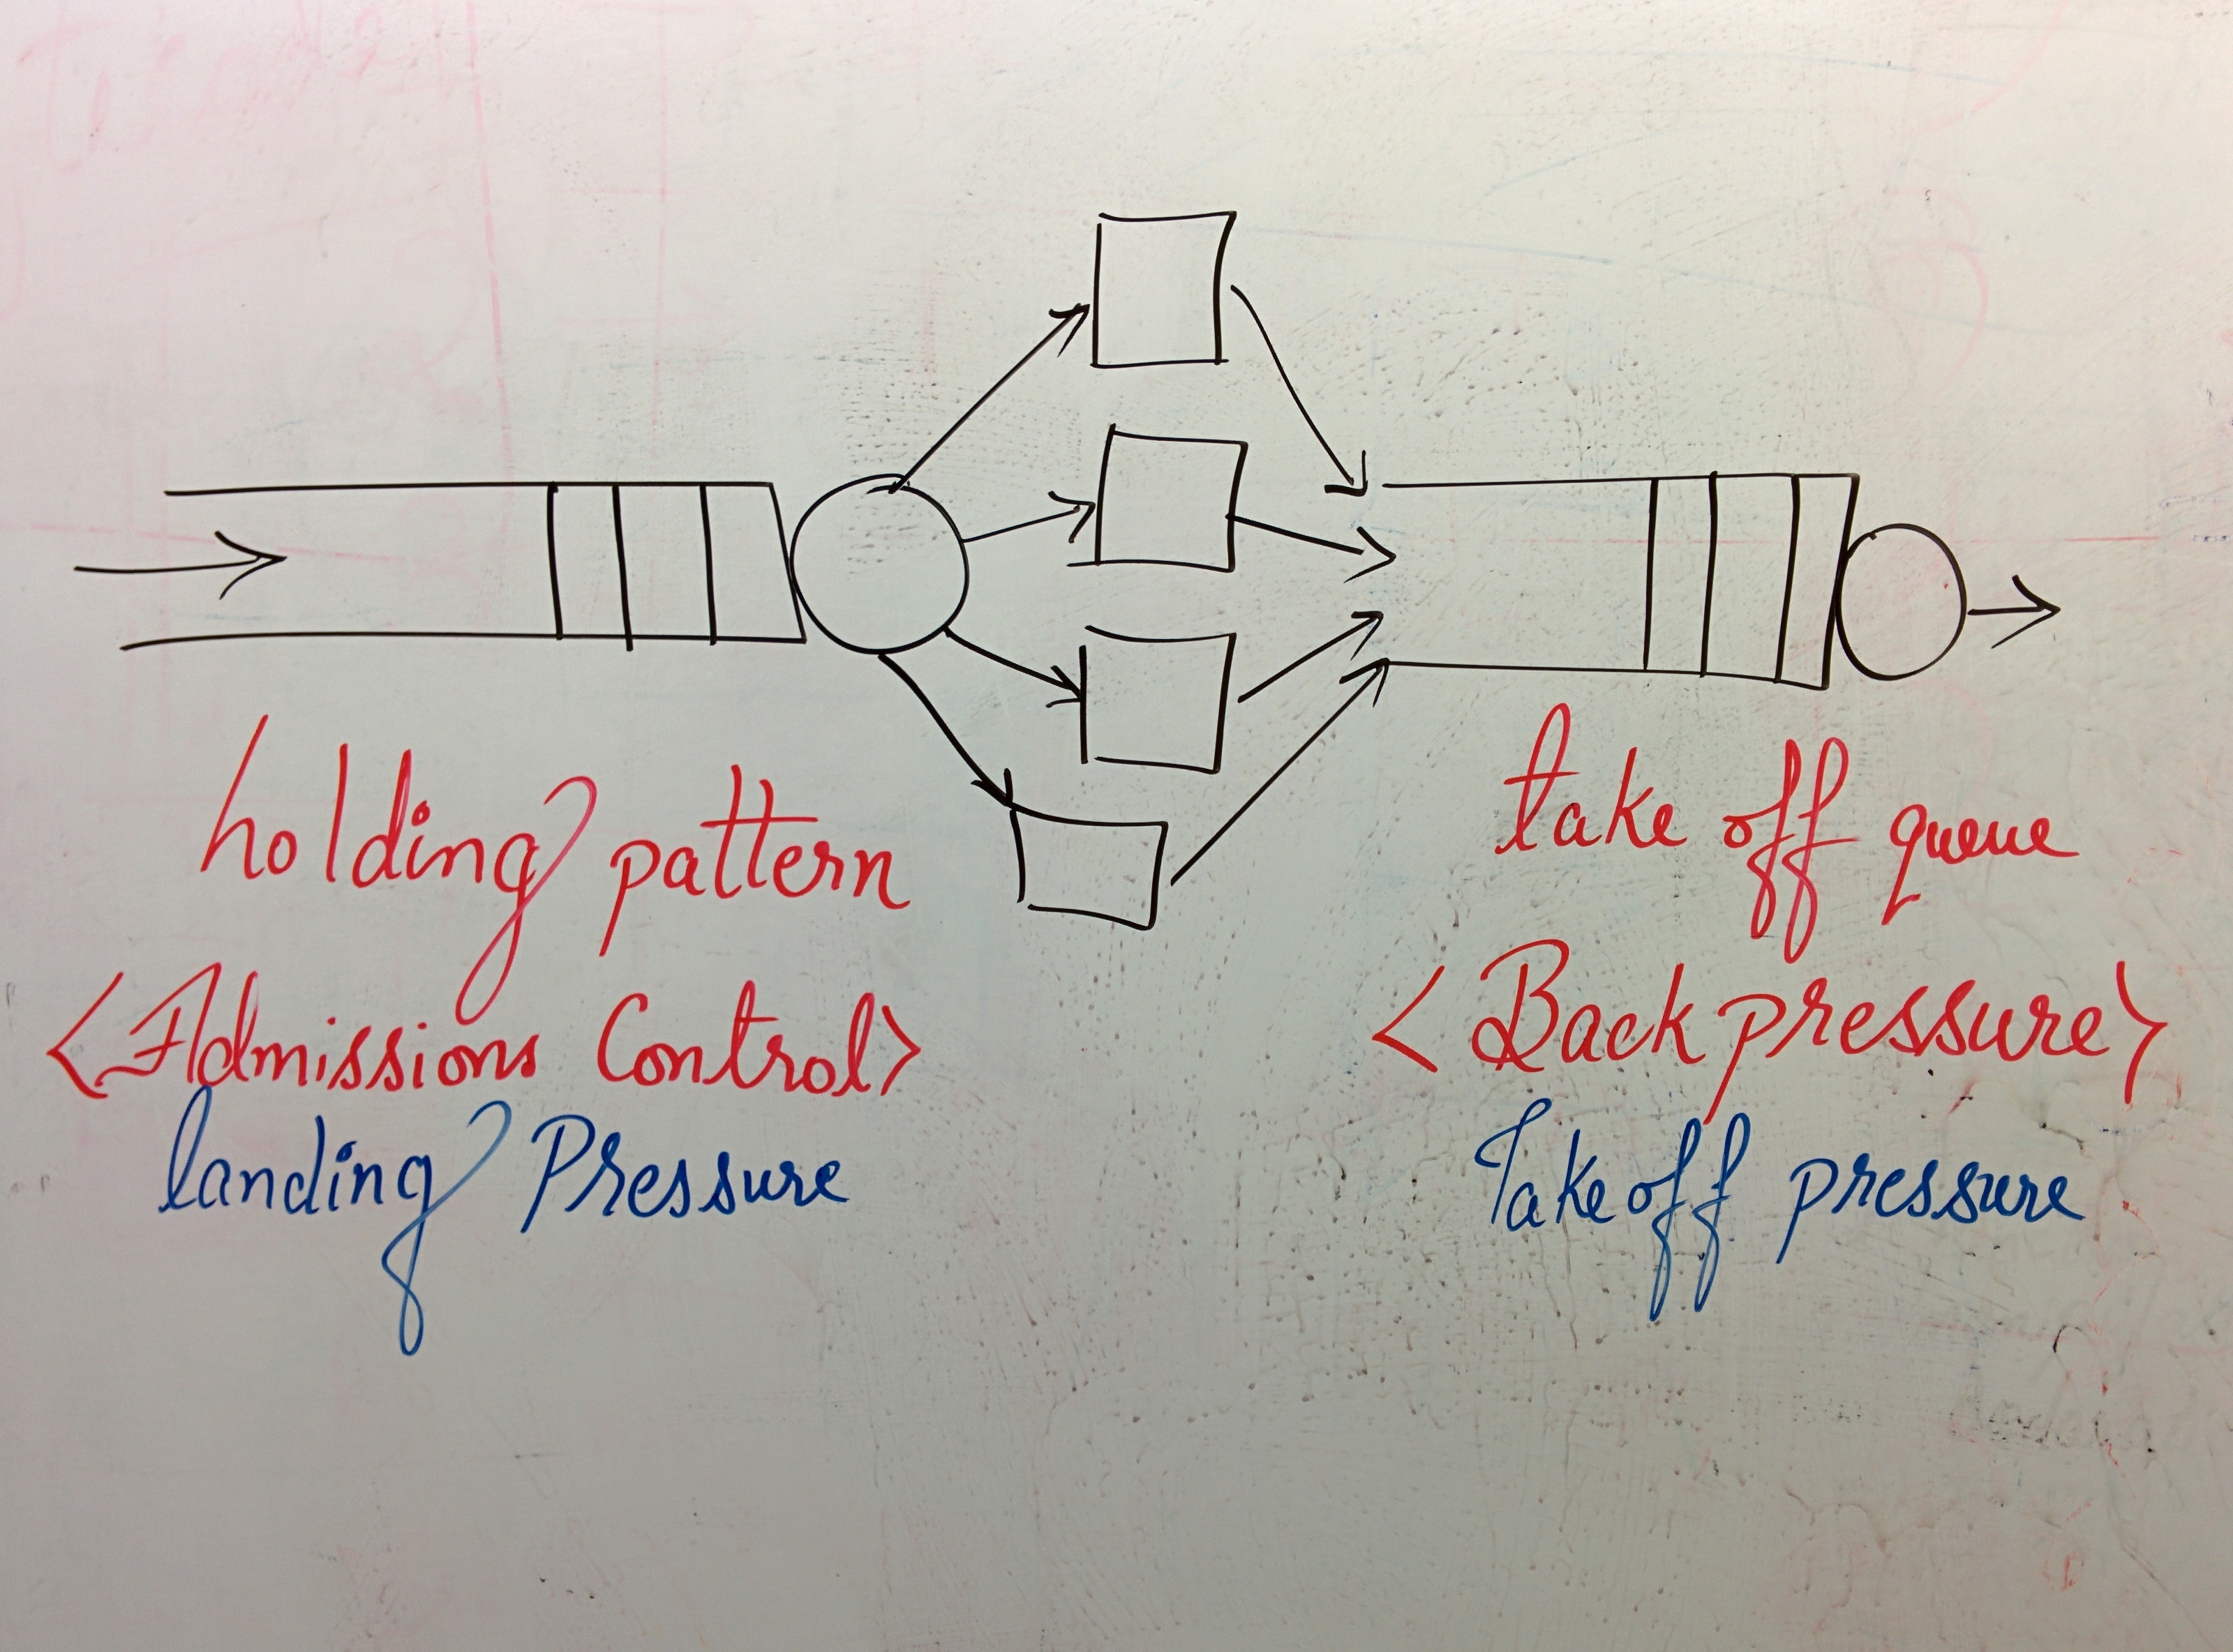 holding pattern
<Admissions Control>
landing Pressure
take off queue
<Backpressure>
Takeoff pressure